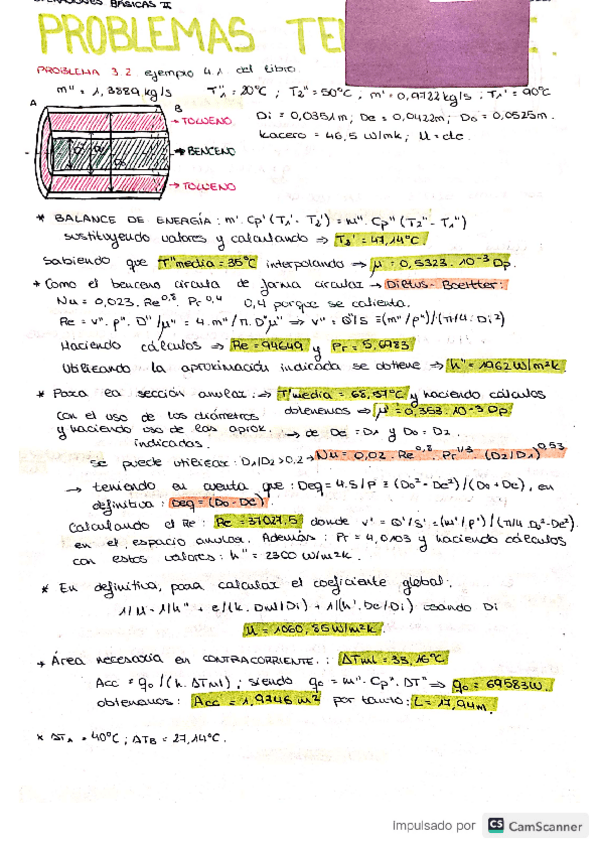 OPERACIONES BÁSICAS II
PROBLEMAS
PROBLEMA 3.2 ejemplo 4.1 del libro.
m" = 1,3889 kg/s   T"1 = 20ºC ; T2" = 50ºC ; m' = 0,9722 kg/s ; T1' = 90ºC
A
B
Di = 0,0351m ; De = 0,0422m ; Do = 0,0525m.
→ TOLUENO
kacero = 46,5 W/mk ; U = cte.
→ BENCENO
→ TOLUENO
* BALANCE DE ENERGÍA : m' Cp' (T1' - T2') = m" Cp" (T2" - T1")
sustituyendo valores y calculando ⇒ T2' = 47,14ºC.
Sabiendo que T"media = 35ºC interpolando ⇒ μ" = 0,5323·10⁻³
* Como el benceno circula de forma circular → Dittus-Boelter:
Nu = 0,023 · Re^0,8 · Pr^0,4   0,4 porque se calienta.
Re = v" · ρ" · D"/μ" = 4·m"/π·D"μ" ⇒ v" = Q"/S = (m"/ρ")/(π/4 · Di²)
Haciendo cálculos ⇒ Re = 94649 y Pr = 5,6983
Utilizando la aproximación indicada se obtiene ⇒ h" = 1962 W/m²k
* Para la sección anular: ⇒ T'media = 68,57ºC y haciendo cálculos
con el uso de los diámetros obtenemos ⇒ μ' = 0,353·10⁻³
y haciendo uso de las aprox. → de De = D1 y Do = D2.
indicadas.
se puede utilizar : D1/D2 > 0,2 → Nu = 0,02 · Re^0,8 · Pr^1/3 · (D2/D1)^0,53
→ teniendo en cuenta que : Deq = 4·S/P = (Do² - De²)/(Do + De), en
definitiva : Deq = (Do - De)
Calculando el Re : Re = 37027,5 donde v' = Q'/S' = (m'/ρ')/(π/4 Do² - De²).
en el espacio anular. Además : Pr = 4,0103 y haciendo cálculos
con estos valores : h" = 2300 W/m²k.
* En definitiva, para calcular el coeficiente global:
1/U = 1/h" + e/(k·Dml/Di) + 1/(h'·De/Di) usando Di
U = 1060,85 W/m²k.
* Área necesaria en CONTRACORRIENTE. : ΔTml = 33,16ºC
Acc = qo/(U·ΔTml) ; siendo qo = m"·Cp"·ΔT" ⇒ qo = 69583W.
obtenemos : Acc = 1,9746 m² por tanto : L = 17,94m.
* ΔTA = 40ºC ; ΔTB = 27,14ºC.
Impulsado por CS CamScanner